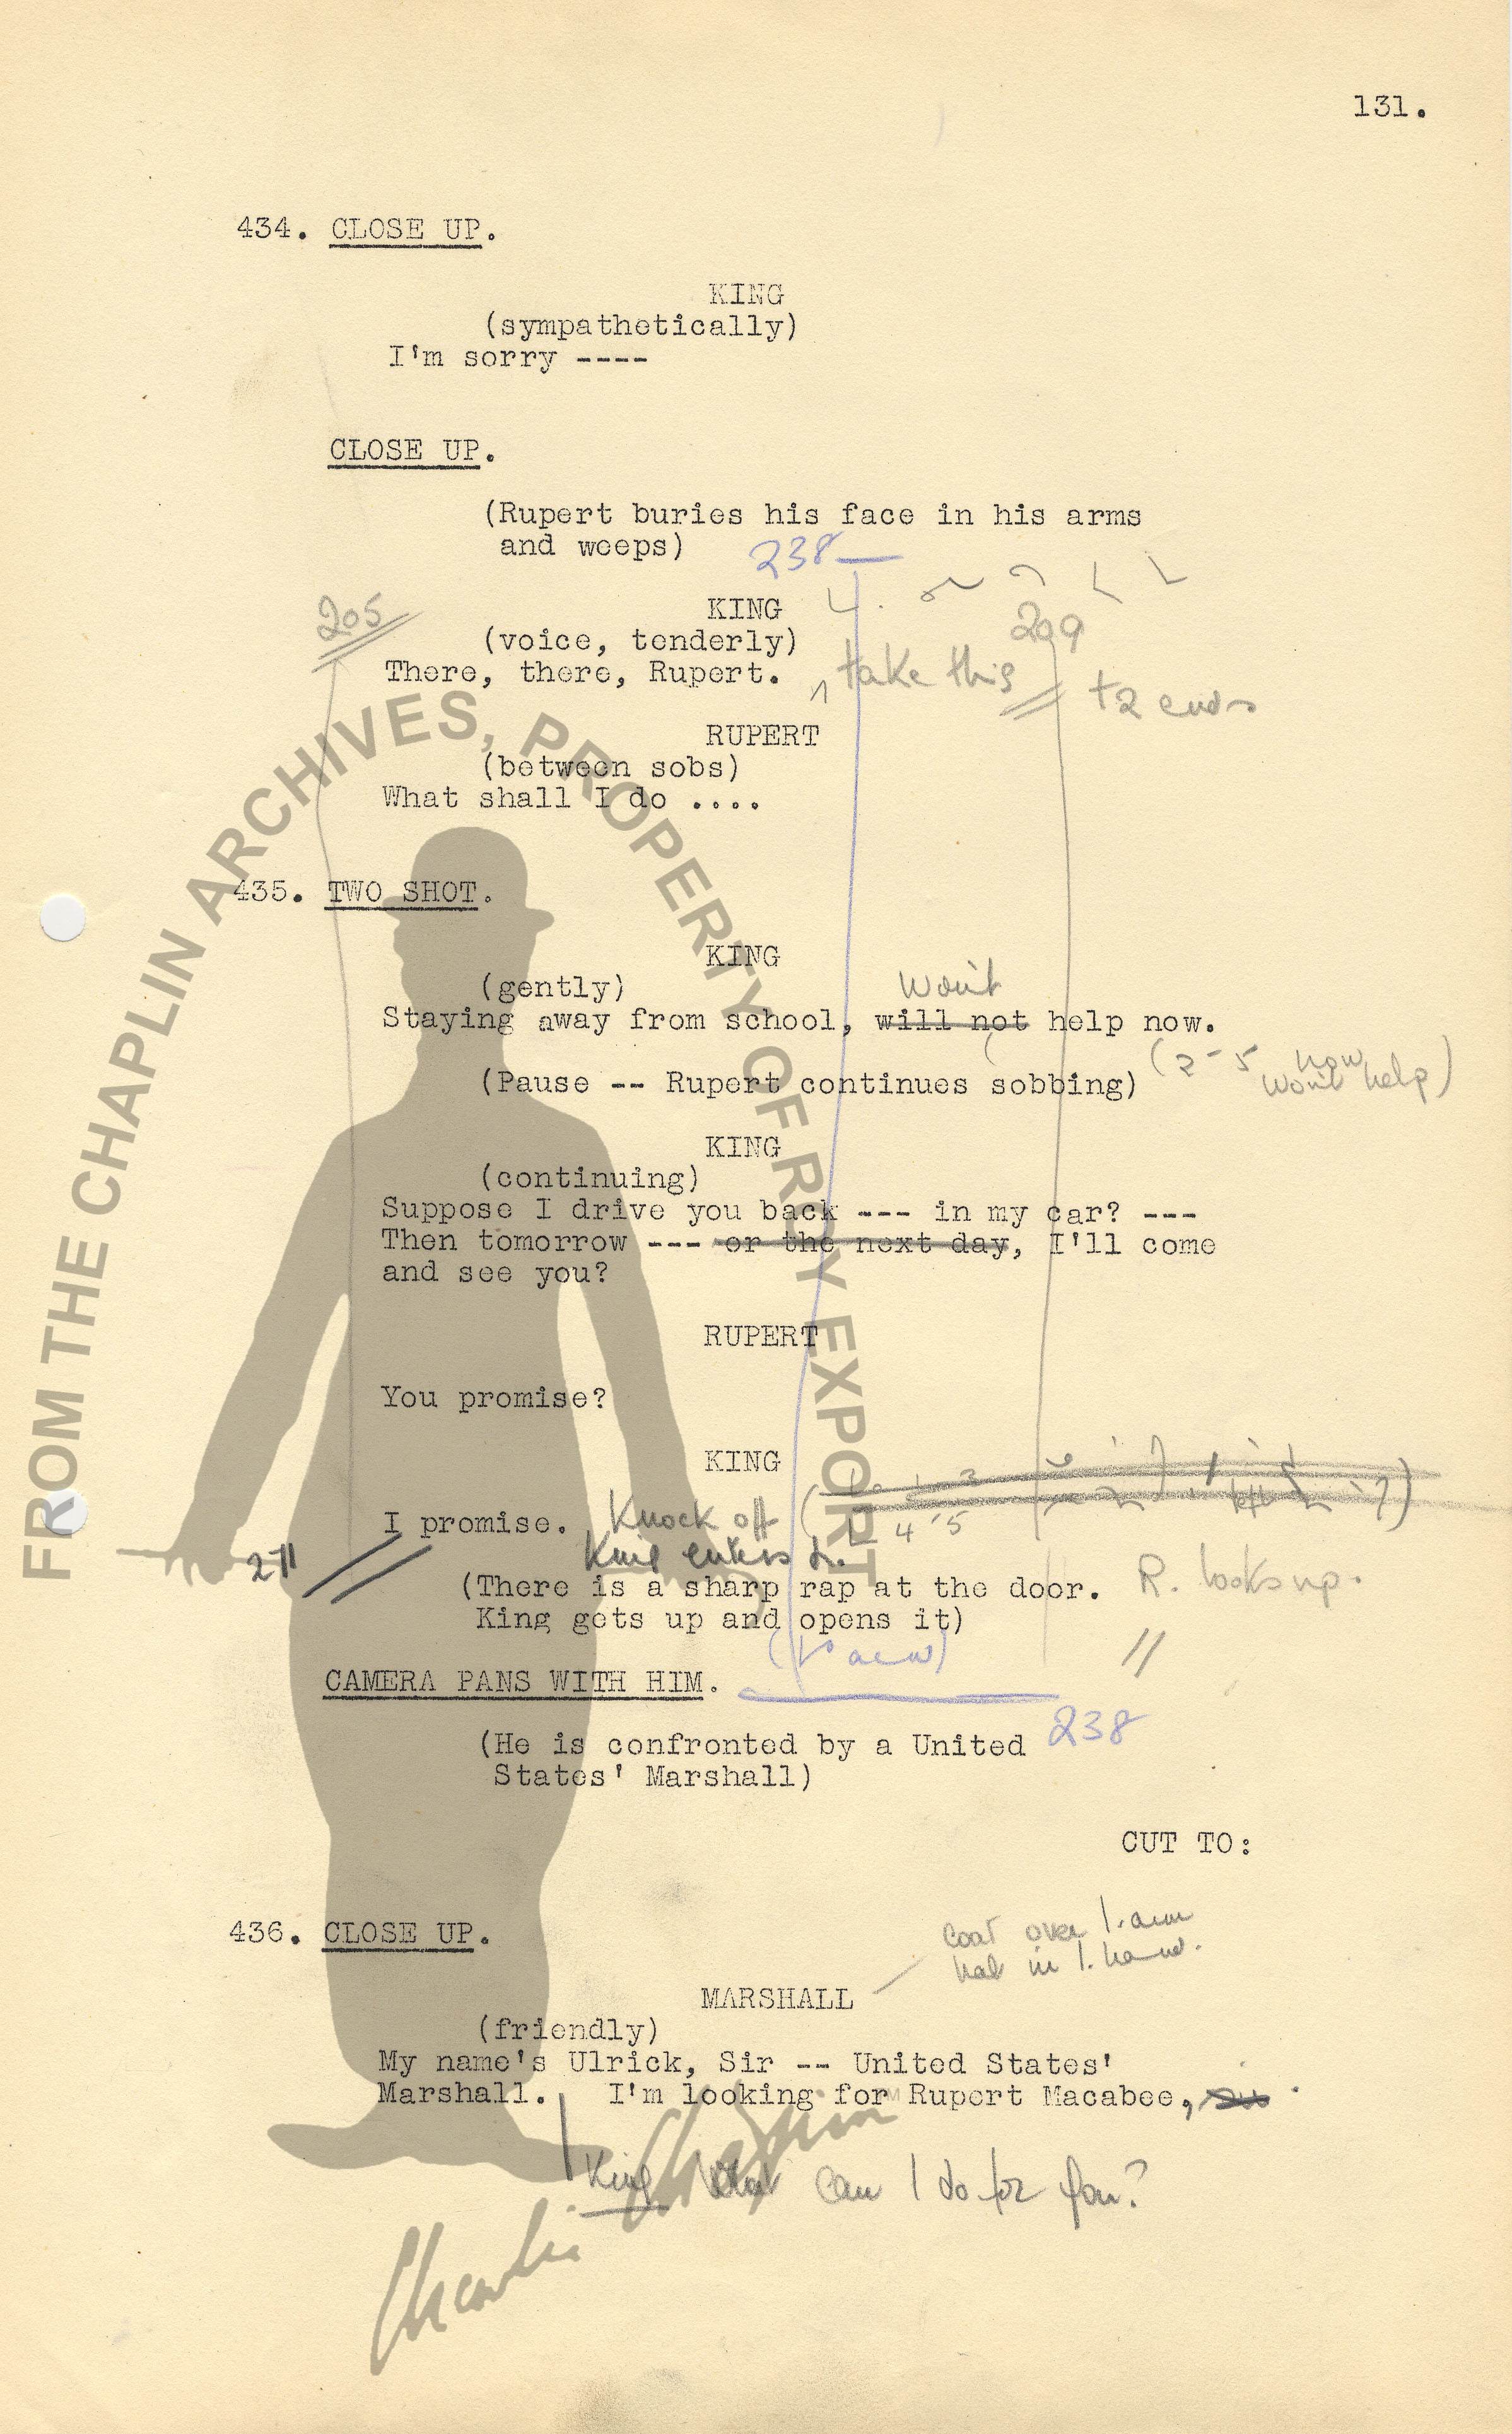 131.
434. CLOSE UP.
KING
(sympathetically)
I'm sorry ----
CLOSE UP.
(Rupert buries his face in his arms
and weeps)
238
205
KING
209
(voice, tenderly)
There, there, Rupert. take this
+2 ends
RUPERT
(between sobs)
What shall I do ....
435. TWO SHOT.
KING
(gently)
won't
Staying away from school, will not help now.
(2-5 now
won't help)
(Pause -- Rupert continues sobbing)
KING
(continuing)
Suppose I drive you back --- in my car? ---
Then tomorrow --- or the next day, I'll come
and see you?
RUPERT
You promise?
KING
I promise. Knock off
4-5
271
(There is a sharp rap at the door. R. looks up.
King gets up and opens it)
CAMERA PANS WITH HIM.
238
(He is confronted by a United
States' Marshall)
CUT TO:
436. CLOSE UP.
coat over l. arm
hat in l. hand.
MARSHALL
(friendly)
My name's Ulrick, Sir -- United States'
Marshall. I'm looking for Rupert Macabee,
King What can I do for you?
FROM THE CHAPLIN ARCHIVES, PROPERTY OF ROY EXPORT
Charlie Chaplin